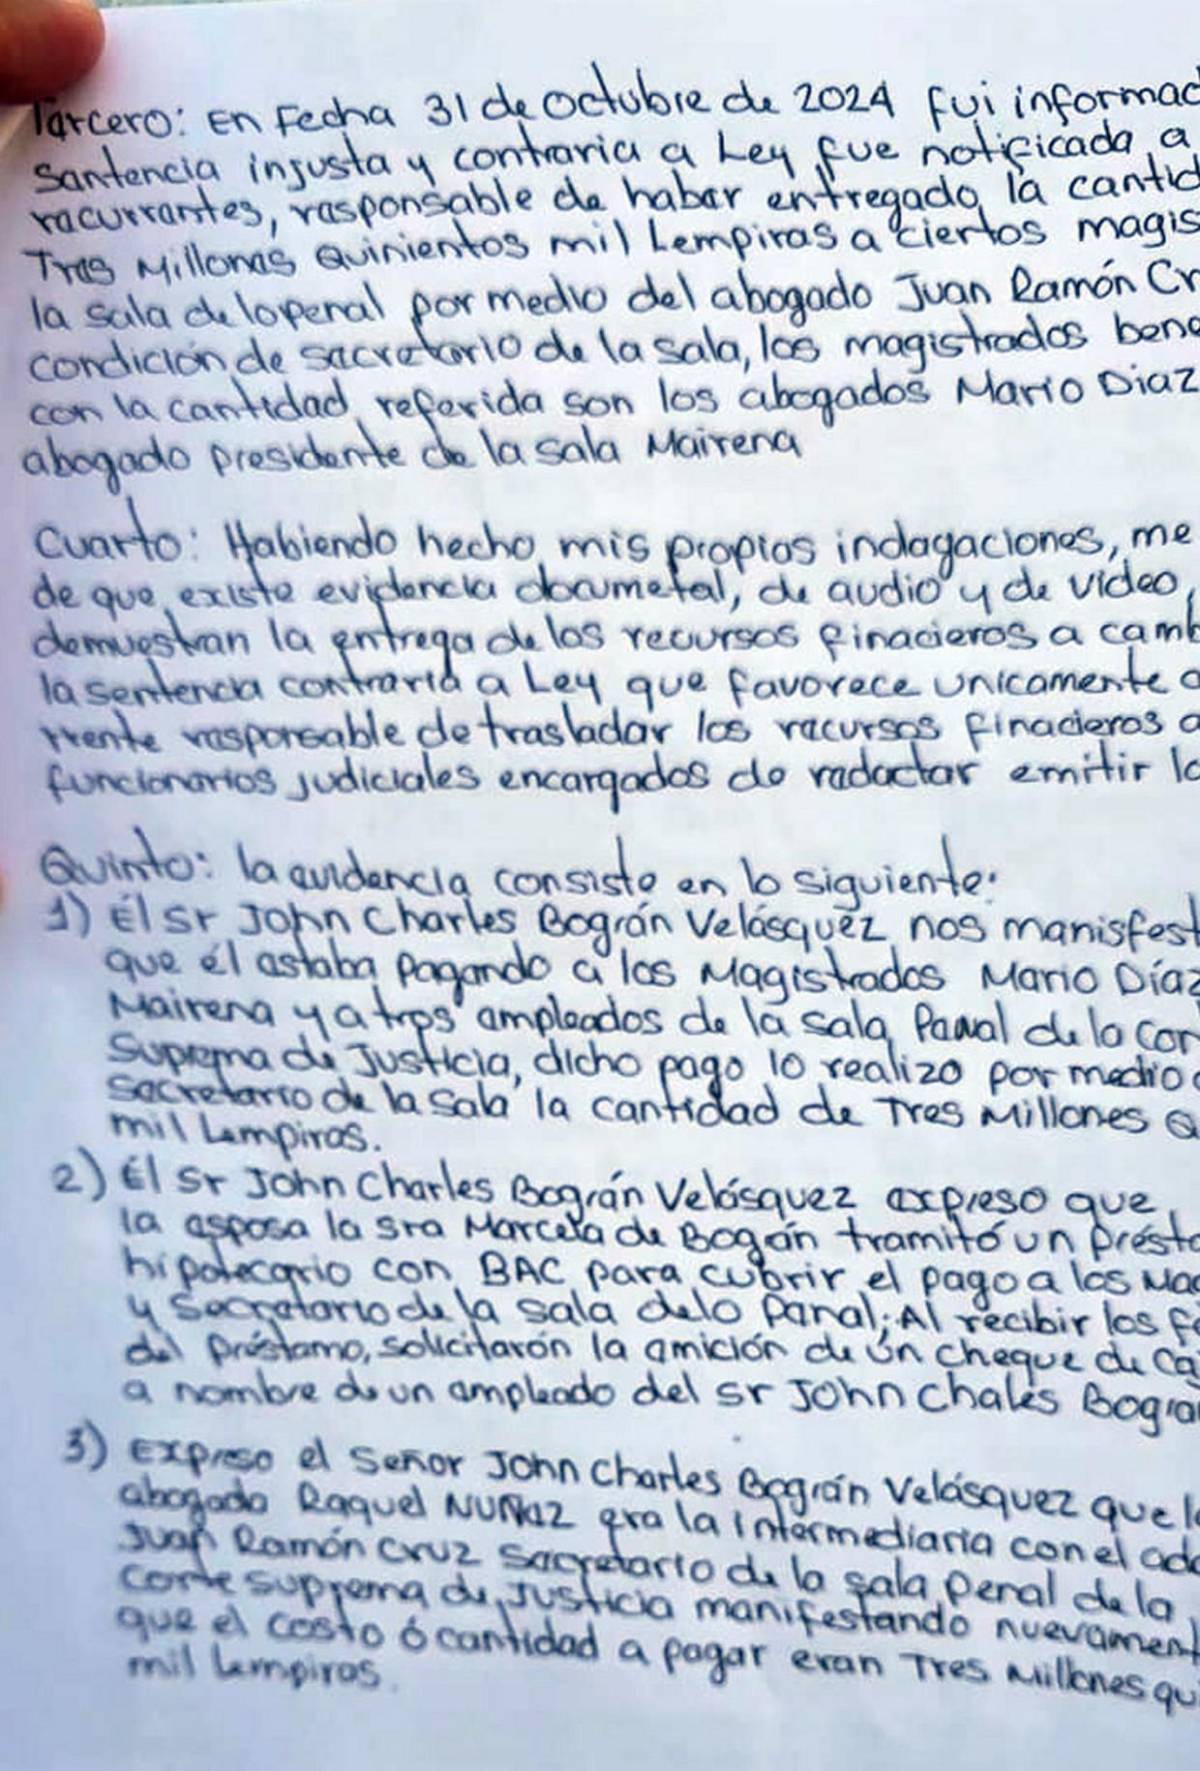 Tercero: En Fecha 31 de Octubre de 2024 fui informad
Santencia injusta y contraria a Ley fue notificada a
racurrantes, rasponsable de habar entregado la cantid
Tres Millones Quinientos mil Lempiras a ciertos magis
la sala de lo penal por medio del abogado Juan Ramón Cr
condición de sacretario de la sala, los magistrados bene
con la cantidad referida son los abogados Mario Diaz
abogado presidente de la sala Mairena
Cuarto: Habiendo hecho mis propias indagaciones, me
de que existe evidencia documetal, de audio y de video,
demuestran la entrega de los recursos finacieros a camb
la sentencia contraria a Ley que favorece unicamente a
rrente responsable de trasladar los racursos finacieros a
funcionarios judiciales encargados de radactar emitir la
Quinto: la evidencia consiste en lo siguiente:
1) Él Sr John Charles Bográn Velásquez nos manisfest
que él estaba pagando a los Magistrados Mario Díaz
Mairena y a tres ampleados de la sala Penal de la Cor
Suprema de Justicia, dicho pago lo realizo por medio d
Sacretario de la Sala la cantidad de Tres Millones Q
mil Lempiras.
2) Él Sr John Charles Bográn Velásquez expreso que
la esposa la Sra Marcela de Bogán tramitó un présta
hipotecario con BAC para cubrir el pago a los Mag
y Secretario de la sala de lo Penal; Al recibir los fo
del préstamo, solicitarón la emición de ún cheque de Caj
a nombre de un empleado del Sr John Chales Bogra
3) Expreso el Señor John Charles Bográn Velásquez que la
abogada Raquel NUÑEZ era la intermediaria con el
Juan Ramón Cruz Sacretario de la sala Penal de la
Corte Suprema de Justicia manifestando nuevament
que el costo ó cantidad a pagar eran Tres Millones qu
mil Lempiras.